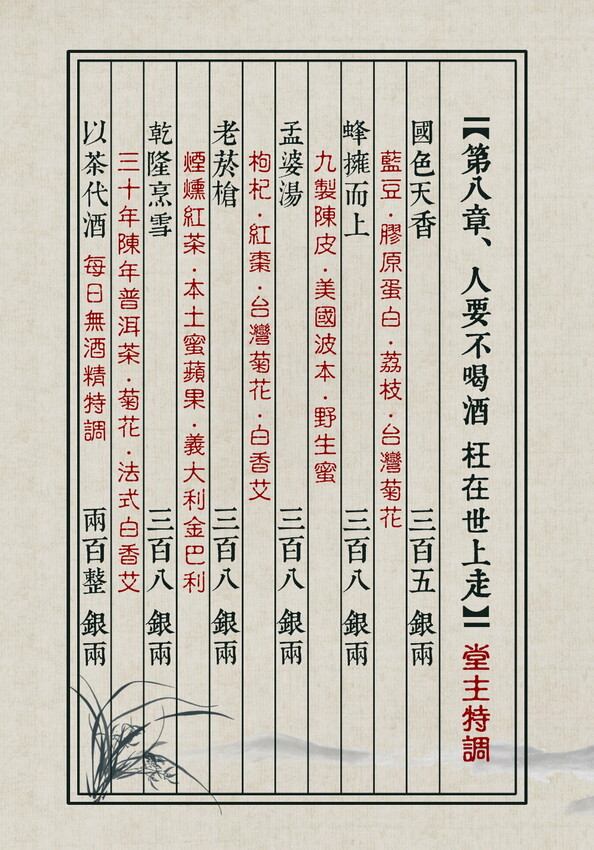 【第八章、人要不喝酒 枉在世上走】堂主特調
國色天香 三百五 銀兩
藍豆·膠原蛋白·荔枝·台灣菊花
蜂擁而上 三百八 銀兩
九製陳皮·美國波本·野生蜜
孟婆湯 三百八 銀兩
枸杞·紅棗·台灣菊花·白香艾
老菸槍 三百八 銀兩
煙燻紅茶·本土蜜蘋果·義大利金巴利
乾隆烹雪 三百八 銀兩
三十年陳年普洱茶·菊花·法式白香艾
以茶代酒 每日無酒精特調 兩百整 銀兩